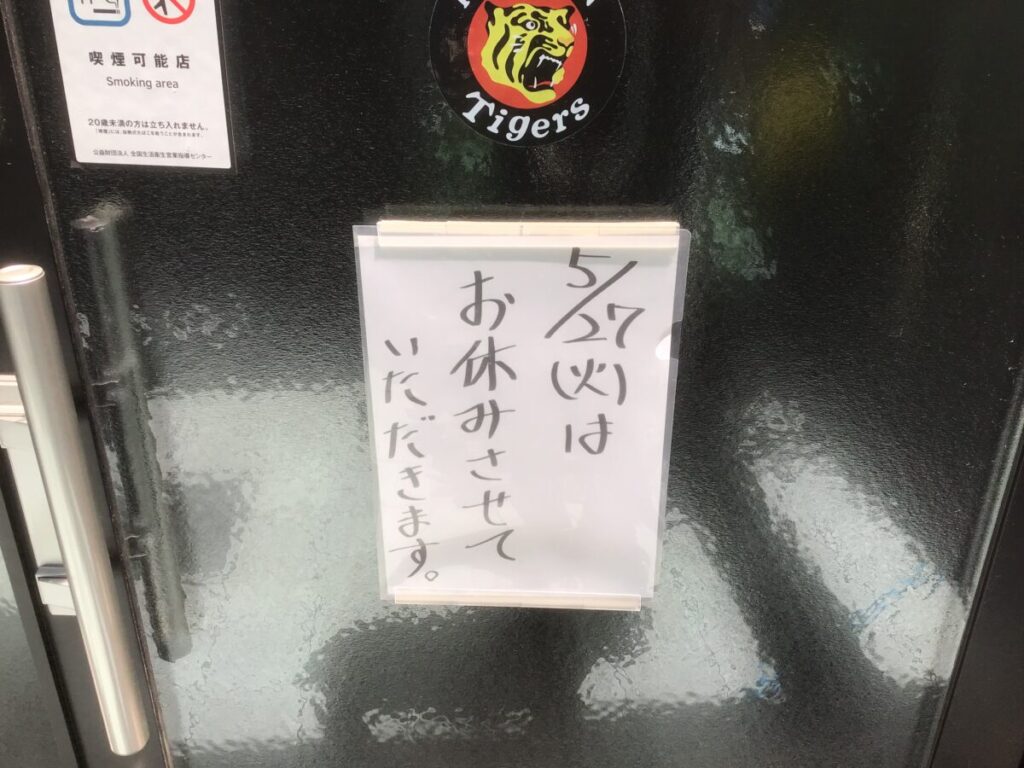 喫煙可能店
Smoking area
20歳未満の方は立ち入れません。
公益財団法人 全国生活衛生営業指導センター
Tigers
5/27(火)は
お休みさせて
いただきます。